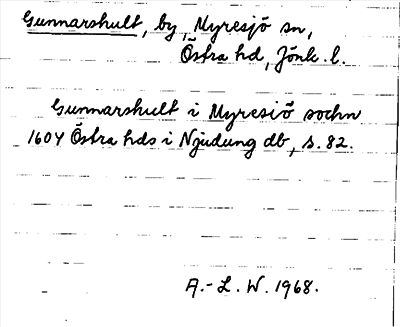 Gunnarshult, by, Myresjö sn,
Östra hd, Jönk. l.
Gunnarshult i Myresiö sochn
1604 Östra hds i Njudung db, s. 82.
A.-L. W. 1968.